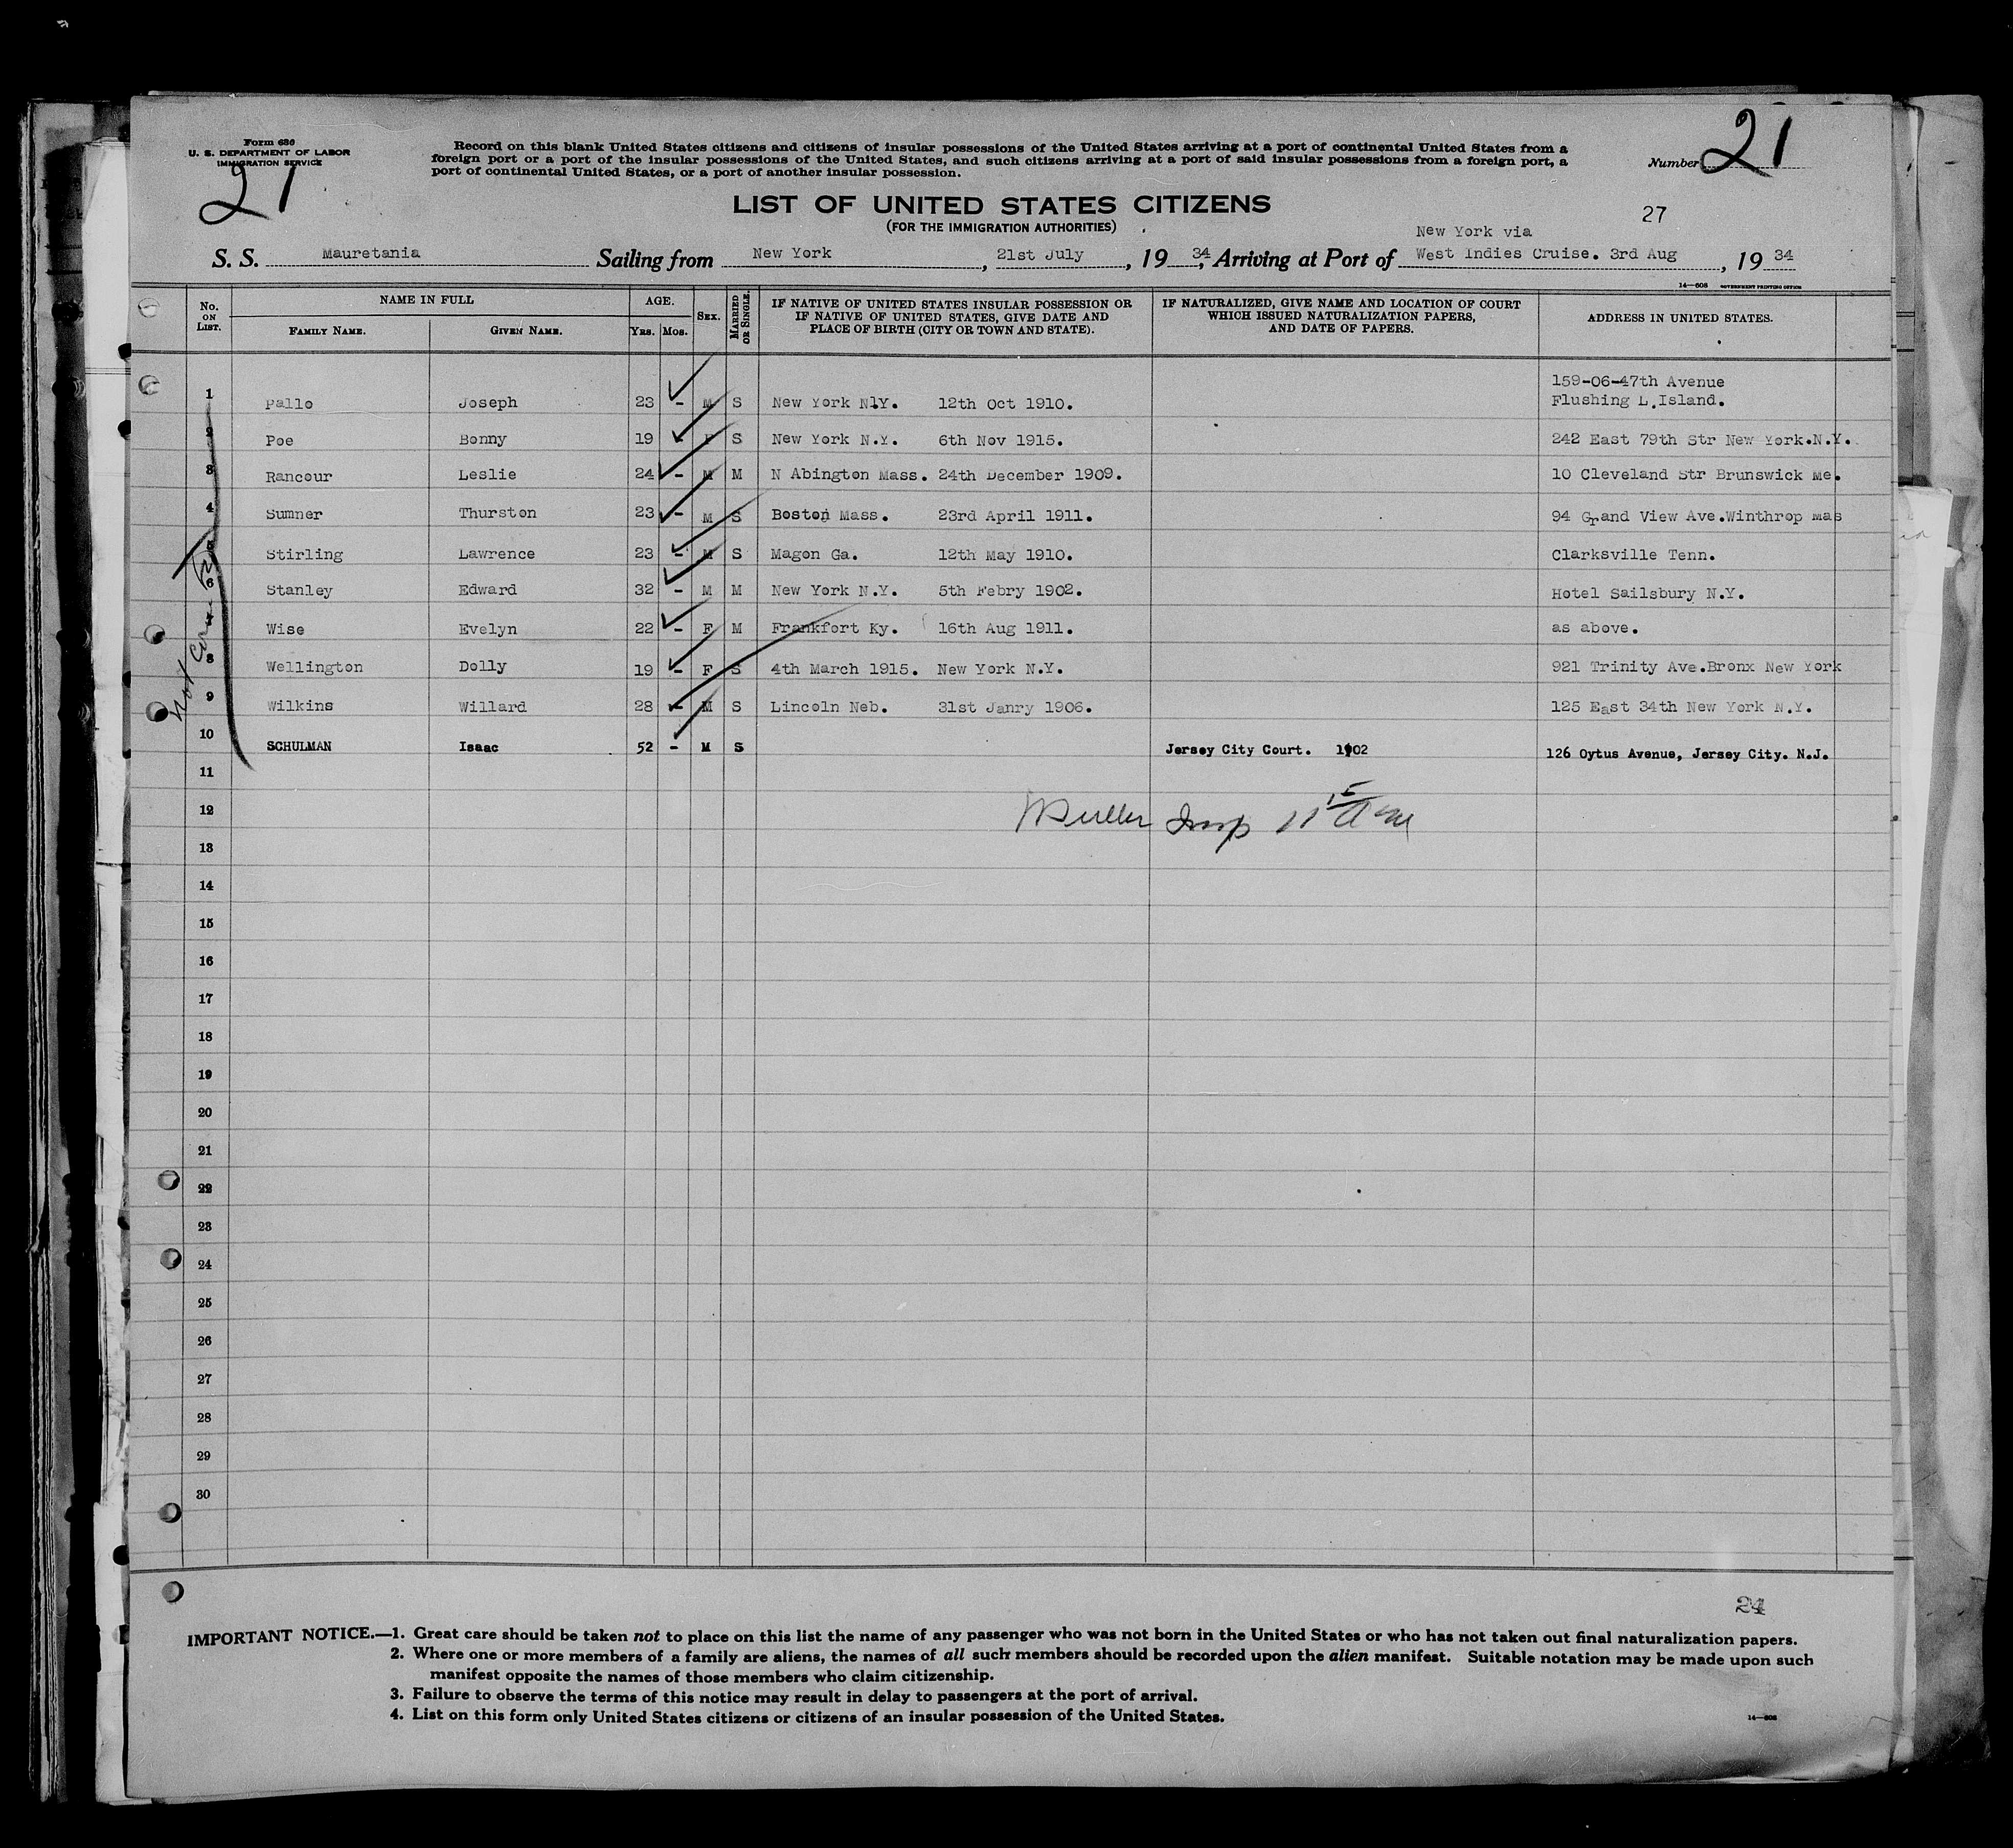 Form 630
U. S. DEPARTMENT OF LABOR
IMMIGRATION SERVICE
21
Record on this blank United States citizens and citizens of insular possessions of the United States arriving at a port of continental United States from a
foreign port or a port of the insular possessions of the United States, and such citizens arriving at a port of said insular possessions from a foreign port, a
port of continental United States, or a port of another insular possession.
Number 21
LIST OF UNITED STATES CITIZENS
(FOR THE IMMIGRATION AUTHORITIES)
27
New York via
S. S. Mauretania Sailing from New York, 21st July, 1934, Arriving at Port of West Indies Cruise. 3rd Aug, 1934
14—608 GOVERNMENT PRINTING OFFICE
No. ON LIST. NAME IN FULL FAMILY NAME. GIVEN NAME. AGE. YRS. MOS. SEX. MARRIED OR SINGLE. IF NATIVE OF UNITED STATES INSULAR POSSESSION OR IF NATIVE OF UNITED STATES, GIVE DATE AND PLACE OF BIRTH (CITY OR TOWN AND STATE). IF NATURALIZED, GIVE NAME AND LOCATION OF COURT WHICH ISSUED NATURALIZATION PAPERS, AND DATE OF PAPERS. ADDRESS IN UNITED STATES.
159-06-47th Avenue
1 Pallo Joseph 23 - M S New York NlY. 12th Oct 1910. Flushing L.Island.
2 Poe Bonny 19 - F S New York N.Y. 6th Nov 1915. 242 East 79th Str New York.N.Y.
3 Rancour Leslie 24 - M M N Abington Mass. 24th December 1909. 10 Cleveland Str Brunswick Me.
4 Sumner Thurston 23 - M S Boston Mass. 23rd April 1911. 94 Grand View Ave.Winthrop Mas
5 Stirling Lawrence 23 - M S Magon Ga. 12th May 1910. Clarksville Tenn.
6 Stanley Edward 32 - M M New York N.Y. 5th Febry 1902. Hotel Sailsbury N.Y.
7 Wise Evelyn 22 - F M Frankfort Ky. 16th Aug 1911. as above.
8 Wellington Dolly 19 - F S 4th March 1915. New York N.Y. 921 Trinity Ave.Bronx New York
9 Wilkins Willard 28 - M S Lincoln Neb. 31st Janry 1906. 125 East 34th New York N.Y.
10 SCHULMAN Isaac 52 - M S Jersey City Court. 1902 126 Oytus Avenue, Jersey City. N.J.
11
12
13
14
15
16
17
18
19
20
21
22
23
24
25
26
27
28
29
30
24
IMPORTANT NOTICE.—1. Great care should be taken not to place on this list the name of any passenger who was not born in the United States or who has not taken out final naturalization papers.
2. Where one or more members of a family are aliens, the names of all such members should be recorded upon the alien manifest. Suitable notation may be made upon such
manifest opposite the names of those members who claim citizenship.
3. Failure to observe the terms of this notice may result in delay to passengers at the port of arrival.
4. List on this form only United States citizens or citizens of an insular possession of the United States.
14—608